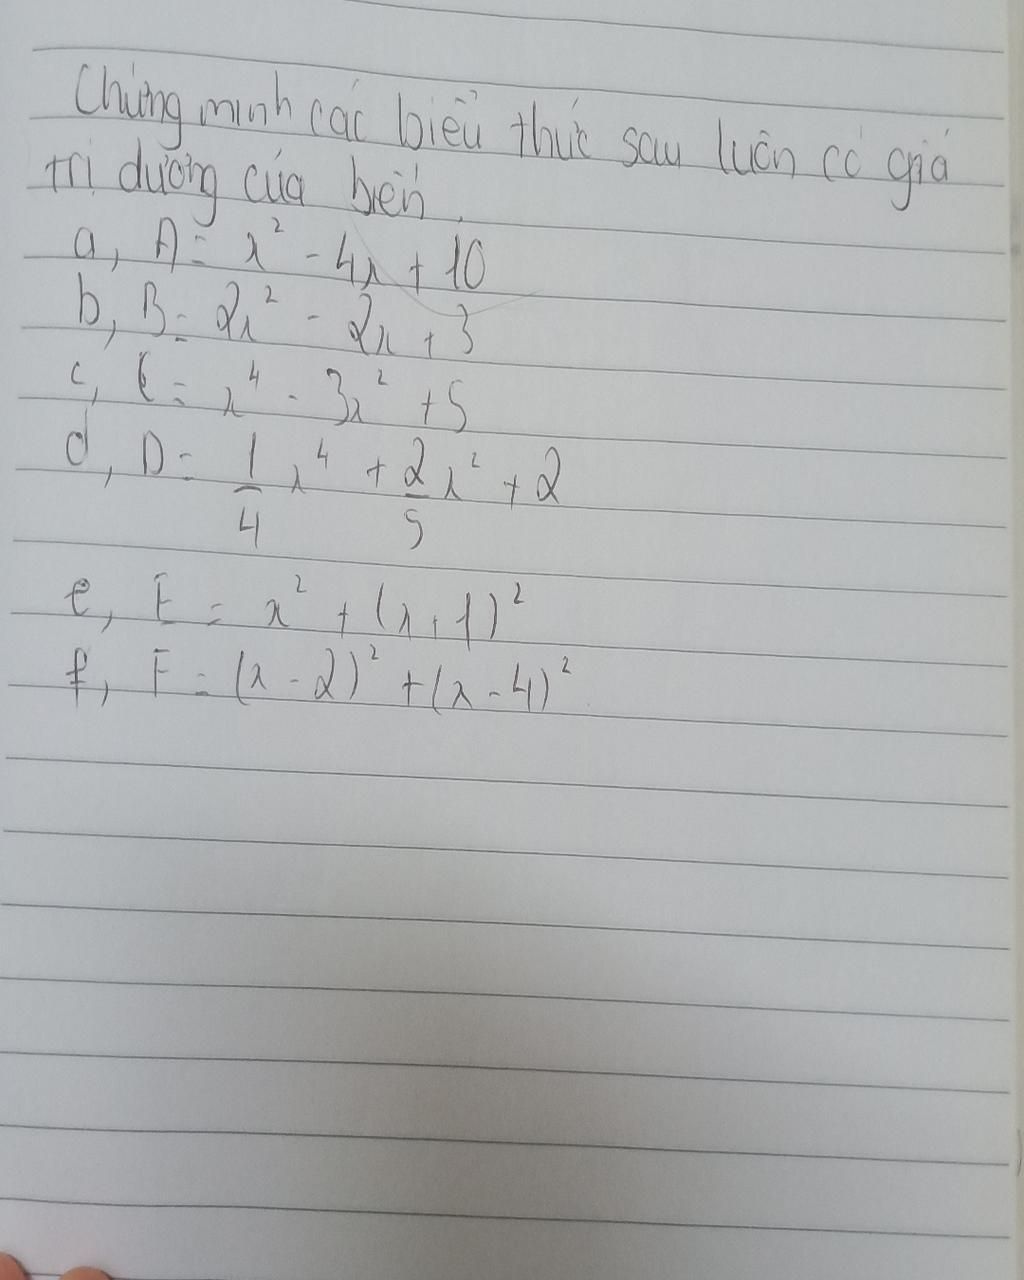 Chứng minh các biểu thức sau luôn có giá
trị dương của biến.
a, A = x² - 4x + 10
b, B = 2x² - 2x + 3
c, C = x⁴ - 3x² + 5
d, D = 1/4 x⁴ + 2/5 x² + 2
e, E = x² + (x+1)²
f, F = (x - 2)² + (x - 4)²